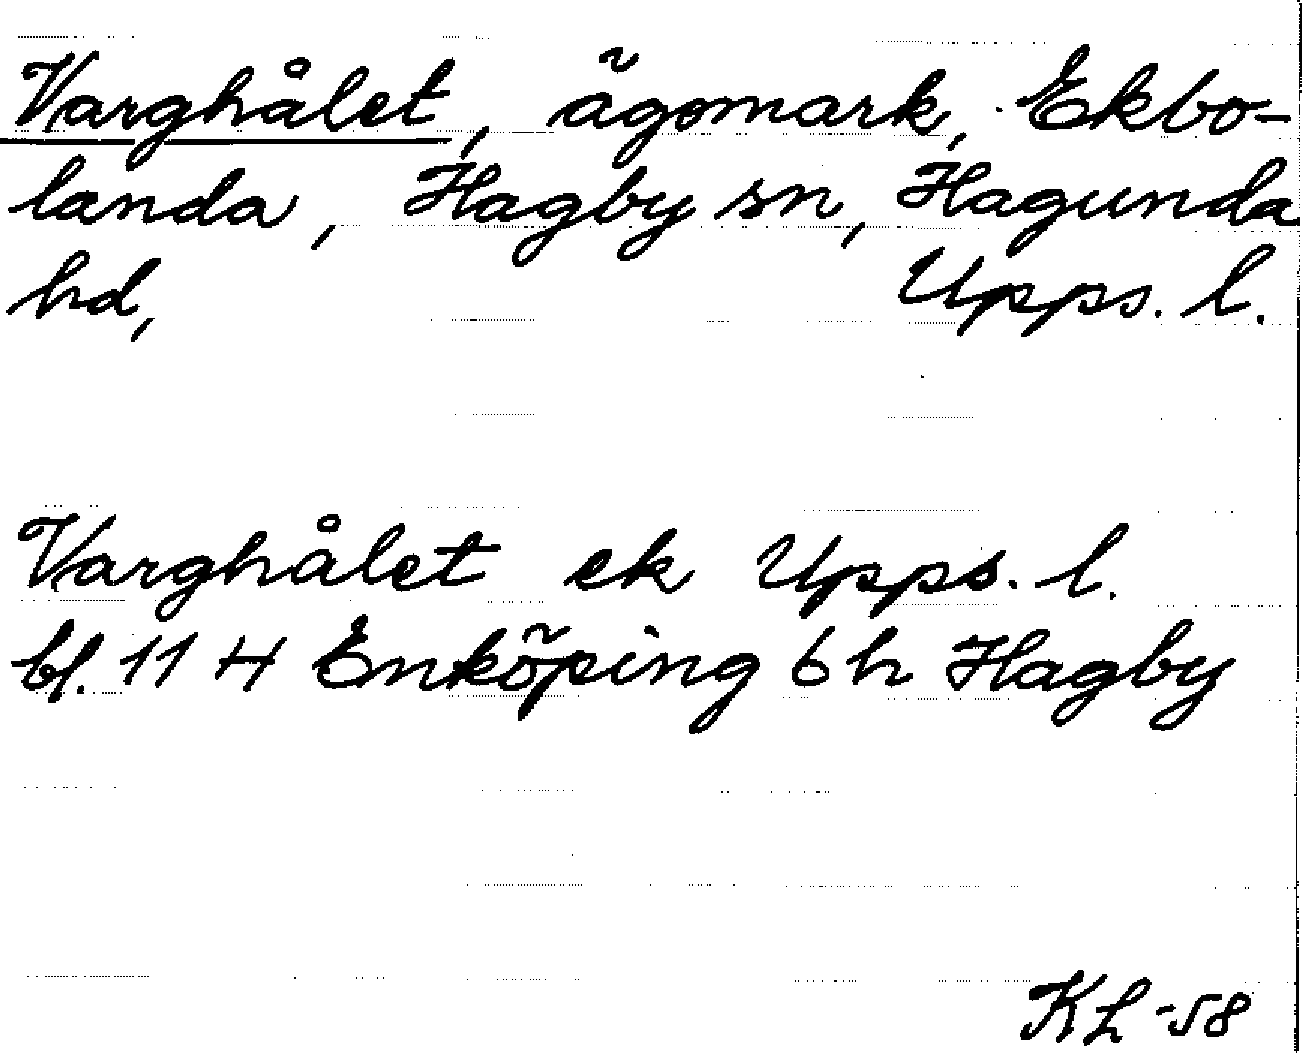 Varghålet, ägomark, Ekbo-
landa, Hagby sn, Hagunda
hd, Upps. l.
Varghålet ek Upps. l.
bl. 11 H Enköping 6 h Hagby
KL -58